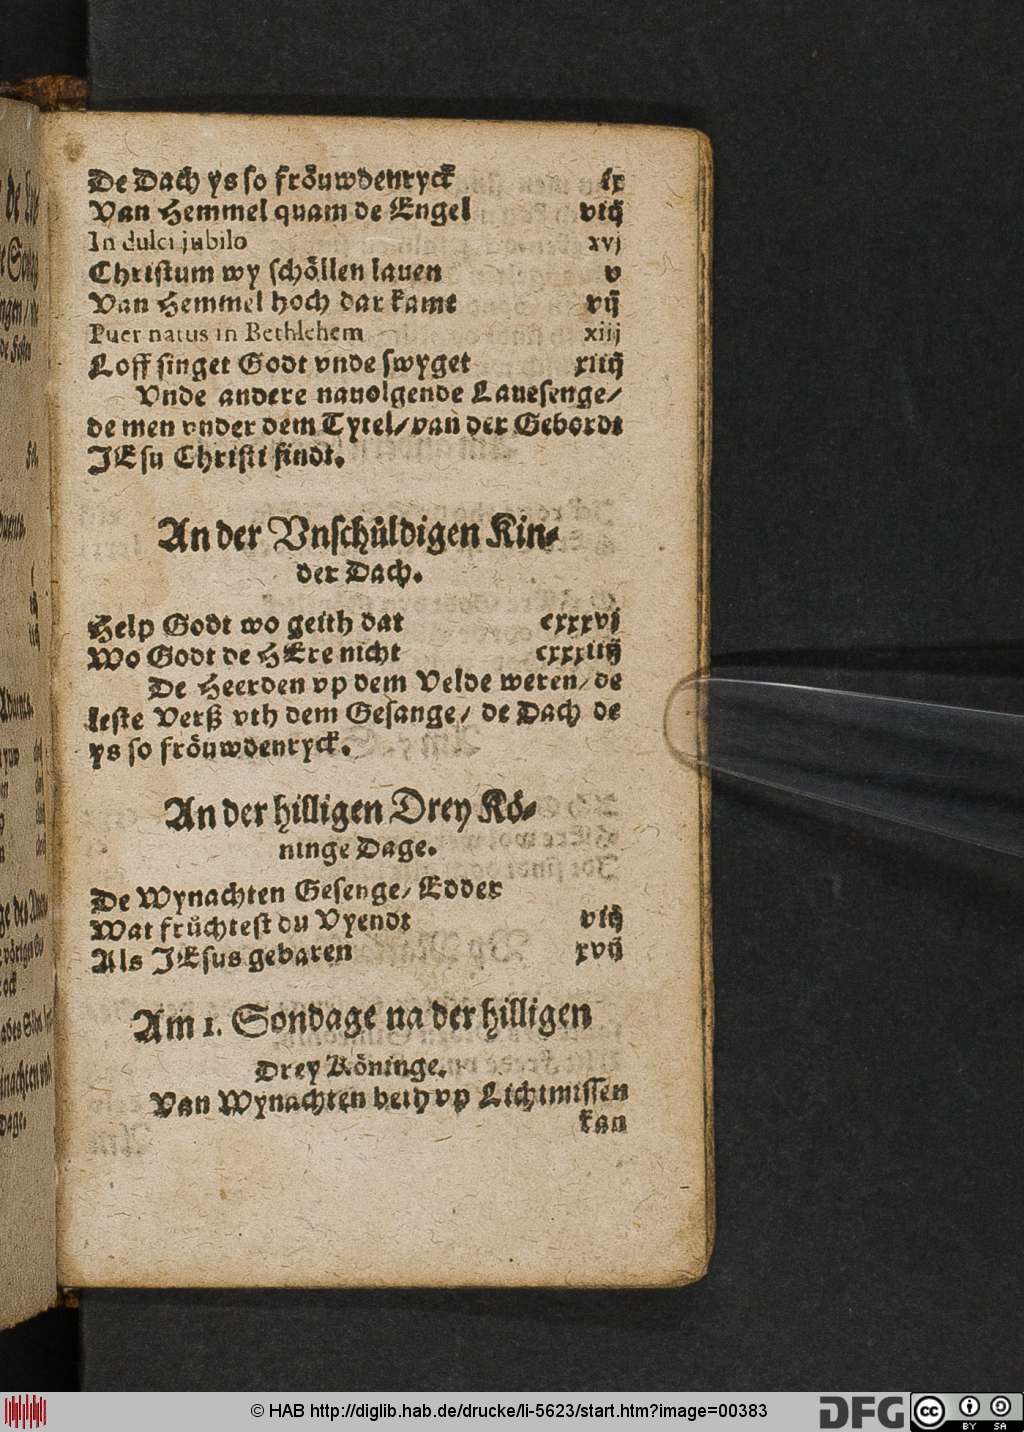 De Dach ys so fröuwdenryck ix
Van Hemmel quam de Engel viij
In dulci jubilo xvj
Christum wy schöllen lauen v
Van Hemmel hoch dar kame vij
Puer natus in Bethlehem xiij
Loff singet Godt vnde swyget xiiij
Vnde andere nauolgende Lauesenge/
de men vnder dem Tytel/ van der Gebordt
JEsu Christi findt.
An der Vnschüldigen Kin-
der Dach.
Help Godt wo geith dat cxxxvj
Wo Godt de HEre nicht cxxxiiij
De Heerden vp dem Velde weren/ de
leste Verß vth dem Gesange/ de Dach de
ys so fröuwdenryck.
An der hilligen Drey Kö-
ninge Dage.
De Wynachten Gesenge/ Edder
Wat früchtest du Vyendt viij
Als JEsus gebaren xvij
Am 1. Sondage na der hilligen
Drey Köninge.
Van Wynachten beth vp Lichtmissen
kan
© HAB http://diglib.hab.de/drucke/li-5623/start.htm?image=00383
DFG
cc
BY SA